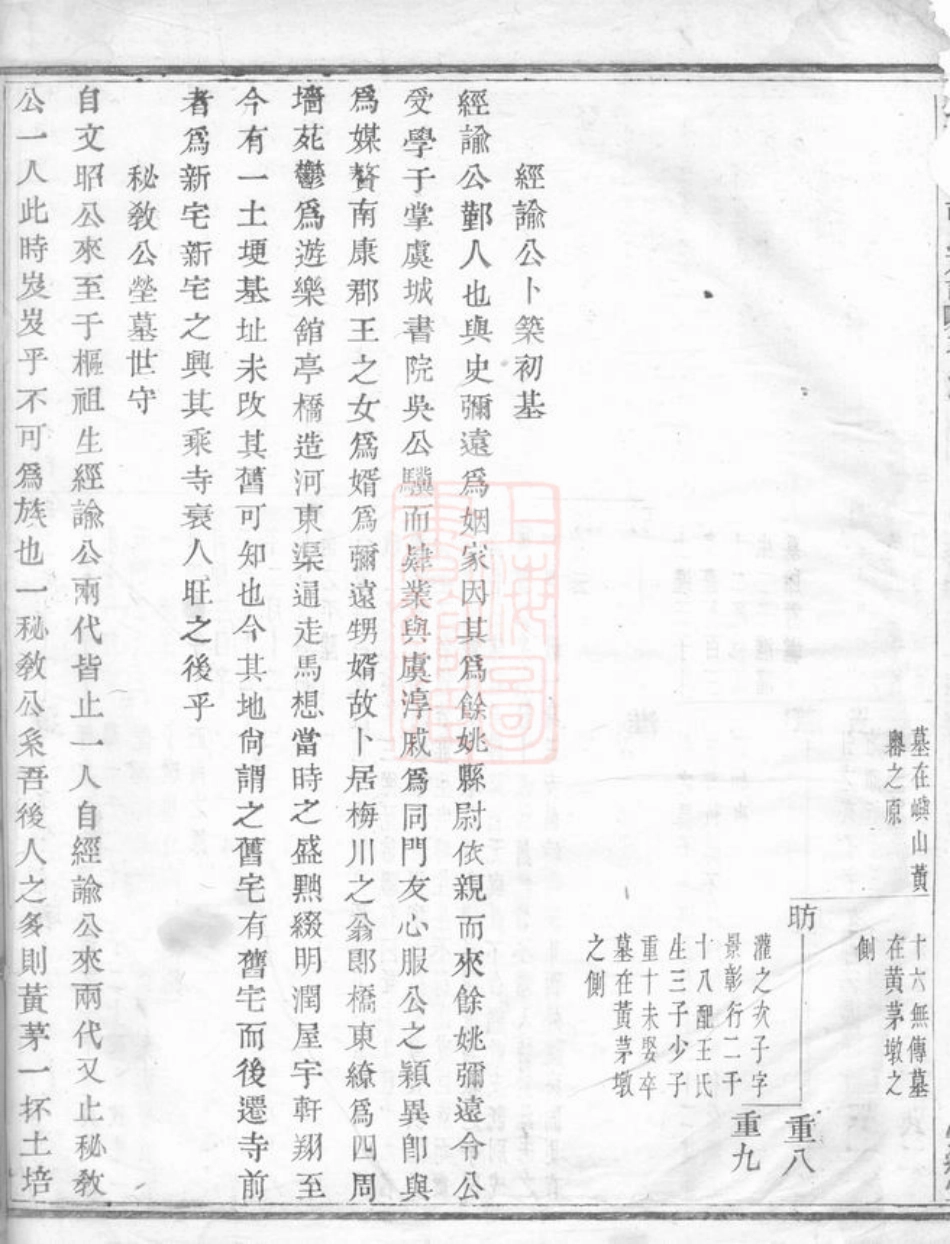 墓在嶼山黃
礐之原
十六無傳墓
在黄茅墩之
側
昉
灌之次子字
景彰行二千
十八配王氏
生三子少子
重十未娶卒
墓在黃茅墩
之側
重八
重九
經諭公卜築初基
經諭公鄞人也與史彌遠爲姻家因其爲餘姚縣尉依親而來餘姚彌遠令公
受學于掌虞城書院吳公驥而肄業與虞淳戚爲同門友心服公之穎異卽與
爲媒贅南康郡王之女爲婿爲彌遠甥婿故卜居梅川之翁郎橋東繚爲四周
墻苑鬱爲遊樂舘亭橋造河東渠通走馬想當時之盛黙綴明潤屋宇軒翔至
今有一土埂基址未改其舊可知也今其地尙謂之舊宅有舊宅而後遷寺前
者爲新宅新宅之興其乘寺衰人旺之後乎
秘敎公塋墓世守
自文昭公來至于樞祖生經諭公兩代皆止一人自經諭公來兩代又止秘敎
公一人此時岌岌乎不可爲族也一秘敎公系吾後人之多則黃茅一抔土培